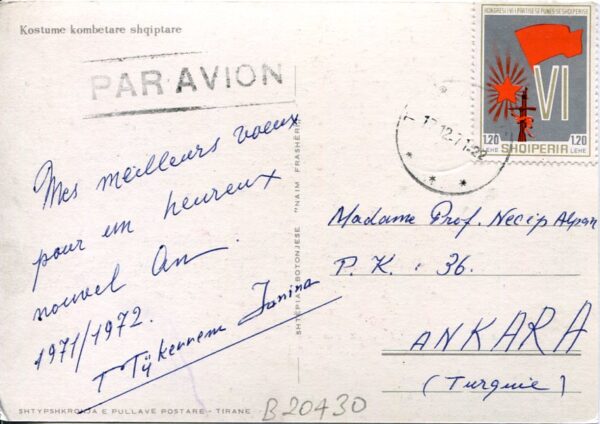 Kostume kombetare shqiptare
PAR AVION
KONGRESI I VI I PARTISE SE PUNES SE SHQIPERISE
VI
1,20 SHQIPERIA 1,20
LEKE LEKE
12.71-22
Mes meilleurs voeux
pour un heureux
nouvel An.
1971/1972.
Janina
SHTEPIA BOTONJESE "NAIM FRASHERI"
Madame Prof. Necip Alpan
P. K : 36.
ANKARA
(Turquie)
SHTYPSHKRONJA E PULLAVE POSTARE - TIRANE
B20430